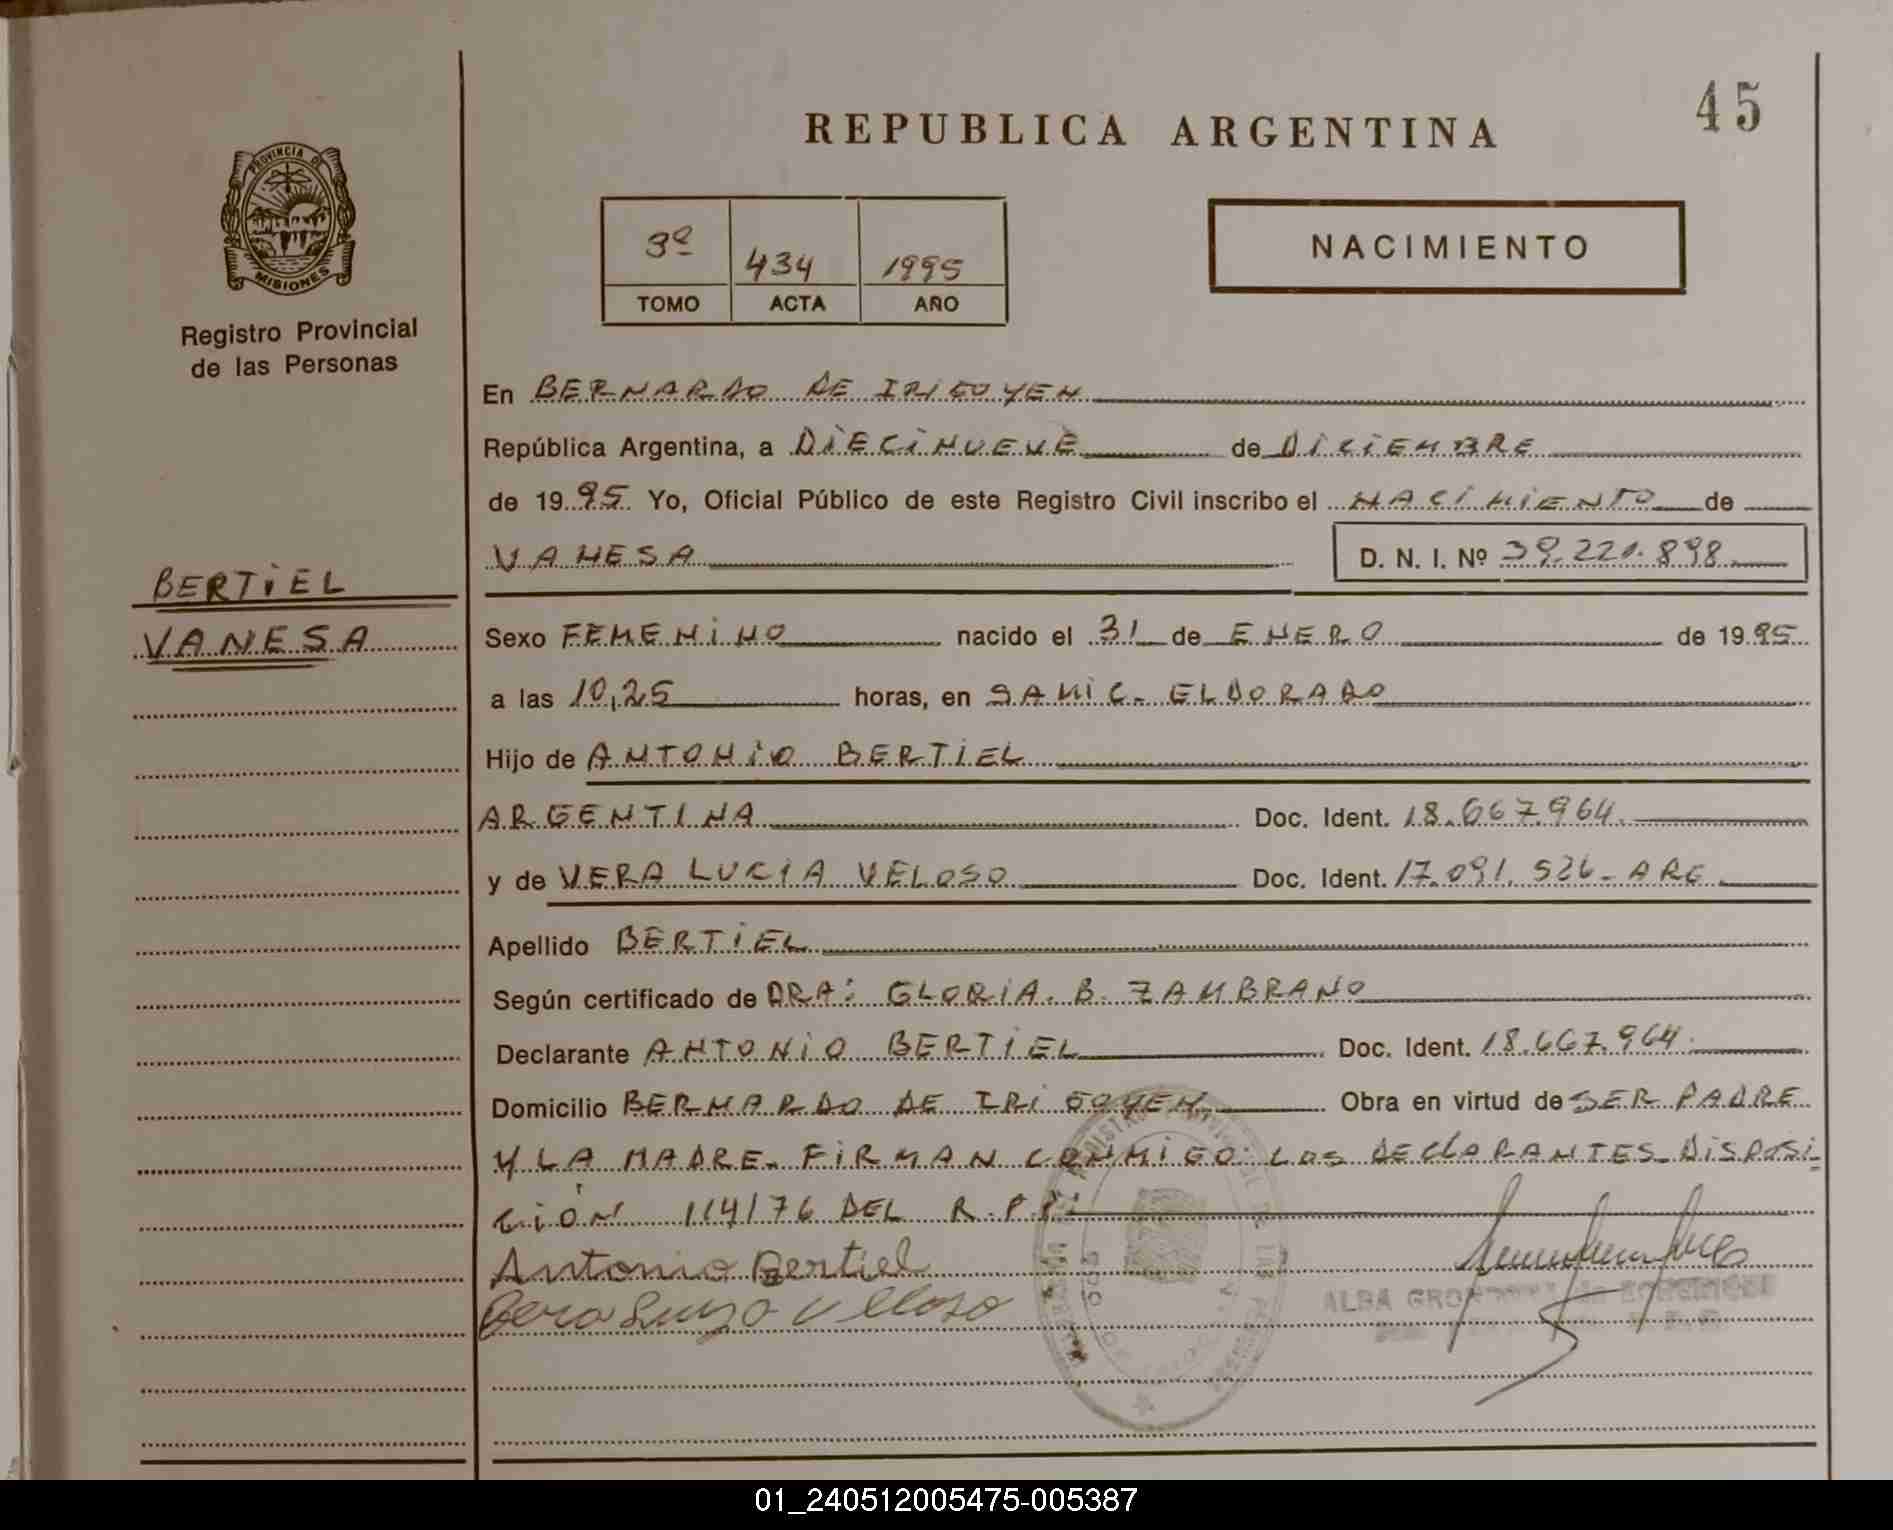 45
REPUBLICA ARGENTINA
PROVINCIA DE
MISIONES
Registro Provincial
de las Personas
3º 434 1995
TOMO ACTA AÑO
NACIMIENTO
En BERNARDO DE IRIGOYEN
República Argentina, a DIECINUEVE de DICIEMBRE
de 1995 Yo, Oficial Público de este Registro Civil inscribo el NACIMIENTO de
VANESA D. N. I. Nº 39.221.898
BERTIEL
VANESA
Sexo FEMENINO nacido el 31 de ENERO de 1995
a las 10,25 horas, en SAMIC. ELDORADO
Hijo de ANTONIO BERTIEL
ARGENTINA Doc. Ident. 18.667.964
y de VERA LUCIA VELOSO Doc. Ident. 17.091.526 - ARG
Apellido BERTIEL
Según certificado de DRA: GLORIA. B. ZAMBRANO
Declarante ANTONIO BERTIEL Doc. Ident. 18.667.964
Domicilio BERNARDO DE IRIGOYEN Obra en virtud de SER PADRE
Y LA MADRE. FIRMAN CONMIGO LOS DECLARANTES. DISPOSI
CIÓN 114/76 DEL R.P.P.
Antonio Bertiel
ALBA
01_240512005475-005387